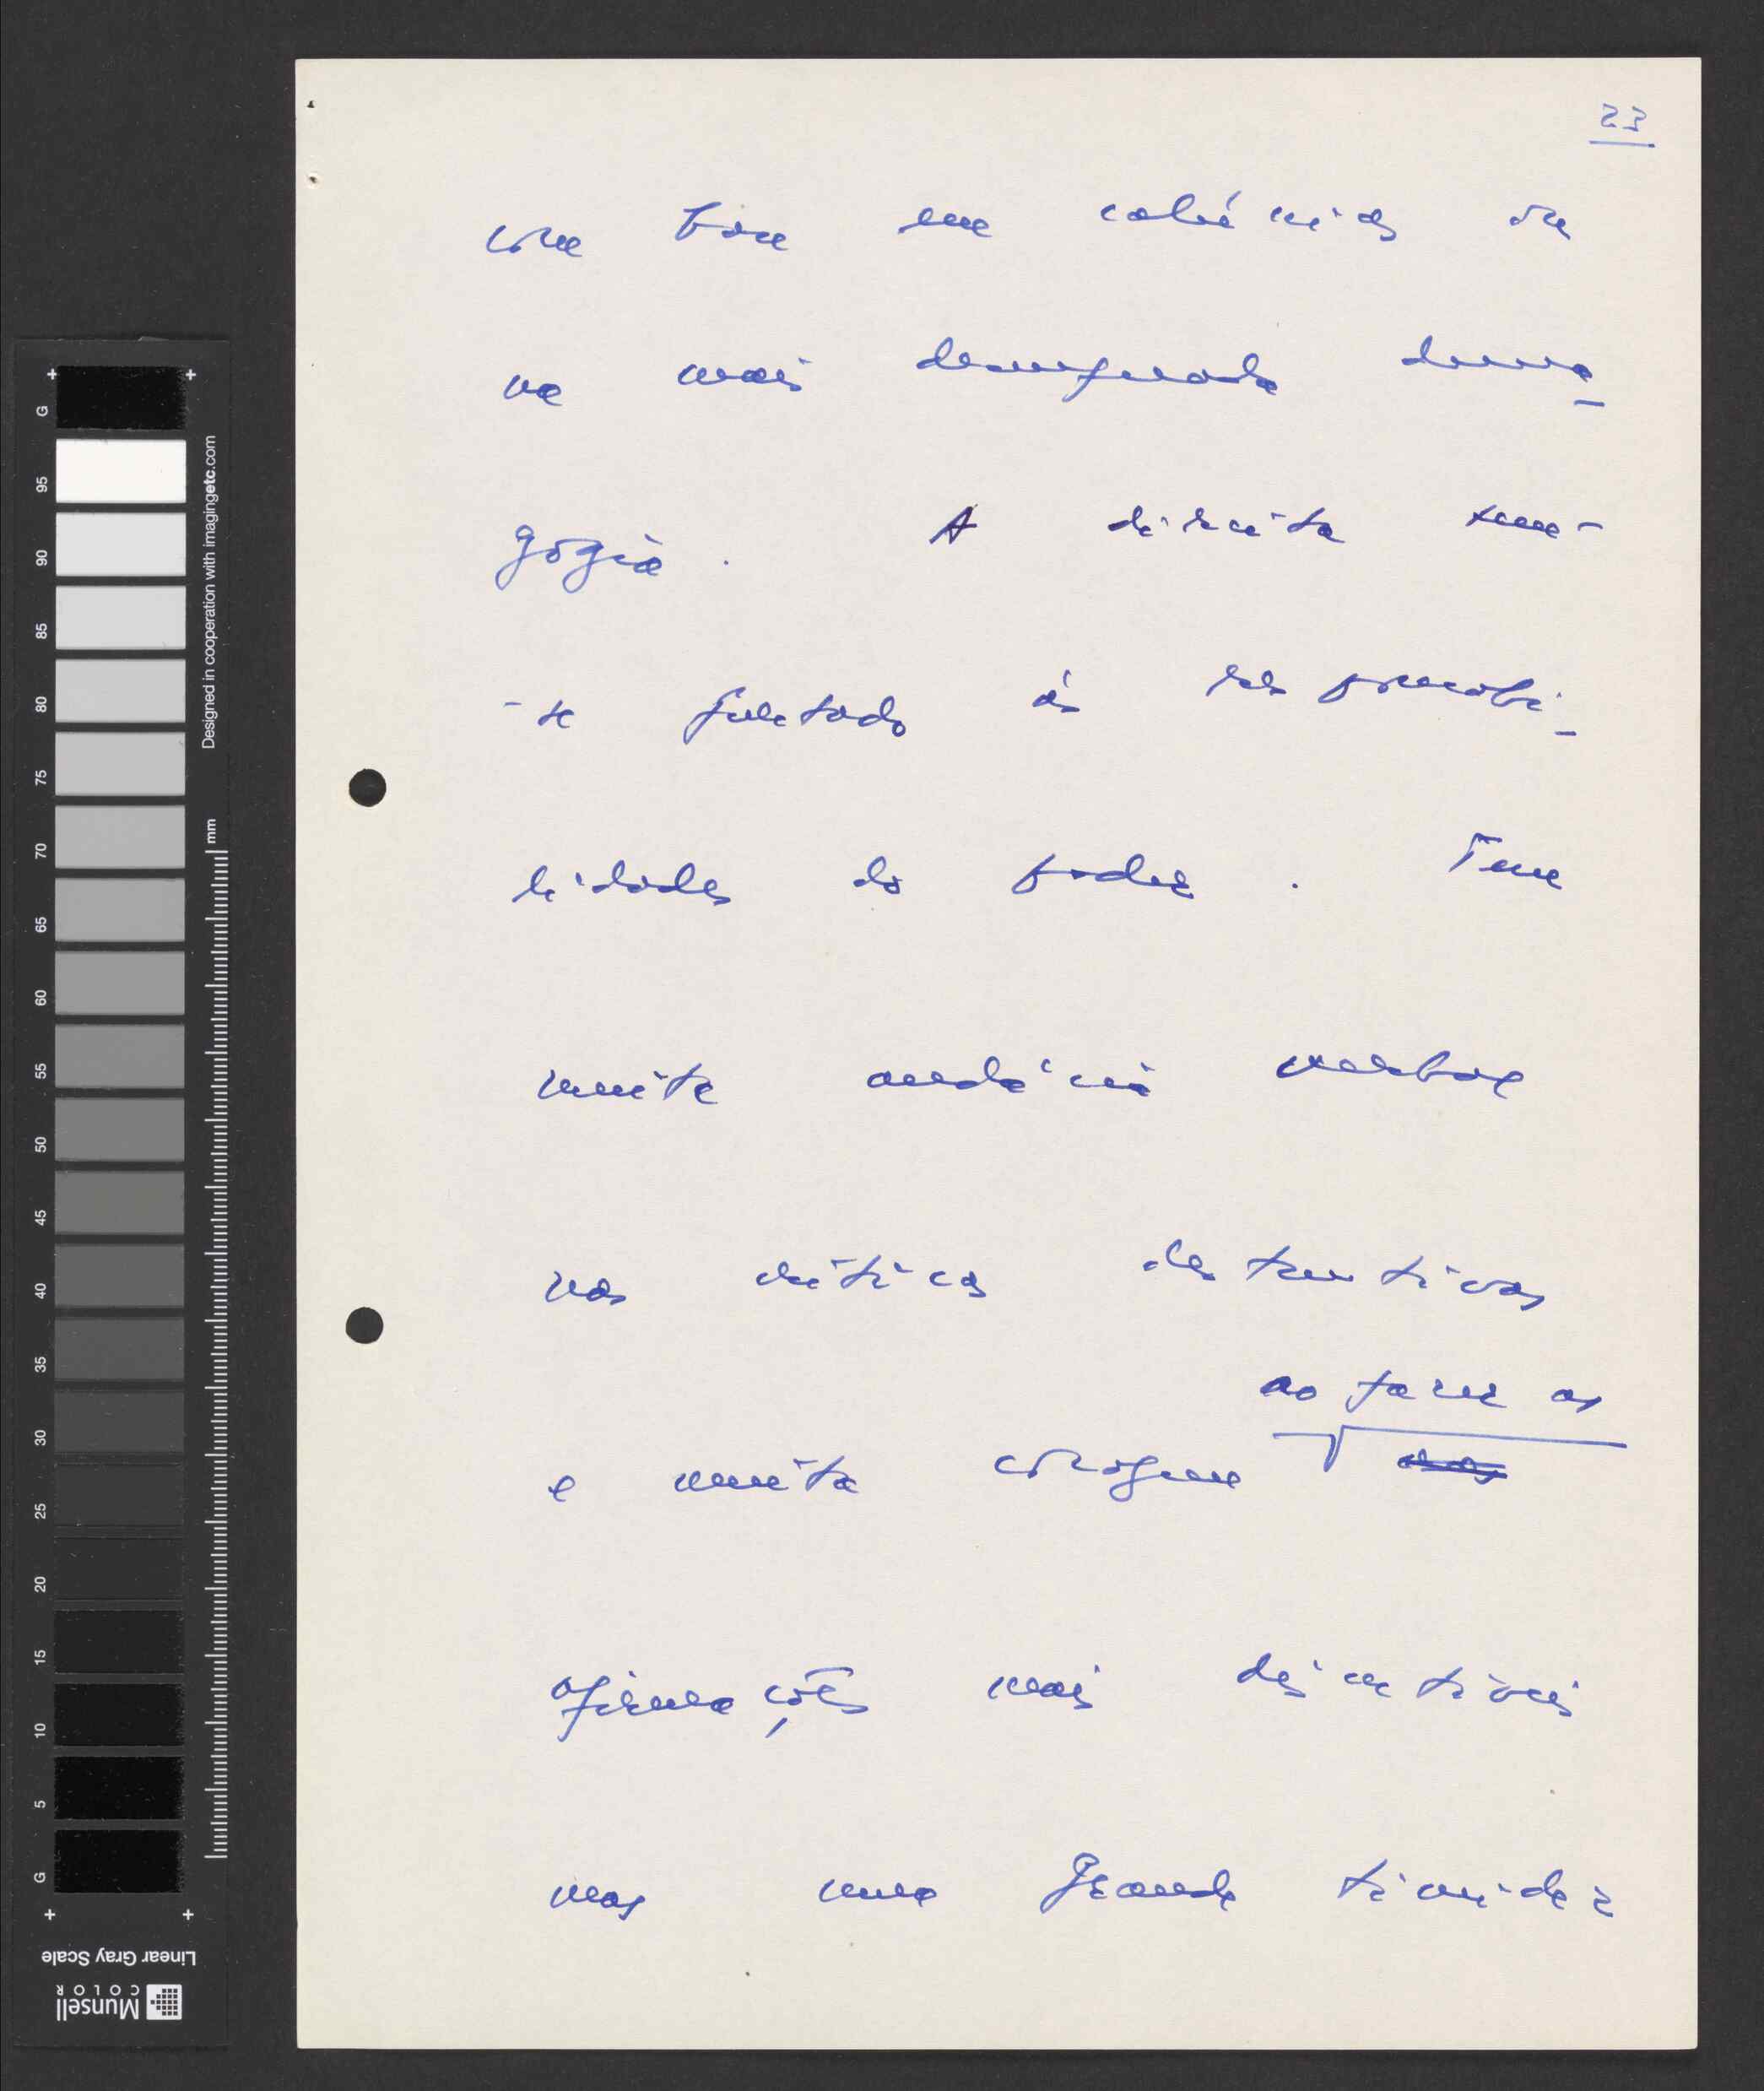 23
com base em calúnias ou
na mais desenfreada dema-
gogia. A direita tem-
-se furtado às responsabi-
lidades do poder. Tem
muita audácia verbal
nas críticas destrutivas
ao fazer as
e muita coragem
afirmações mais discutíveis
mas uma grande timidez
G 95 90 85 80 75 70 65 60 55 50 45 40 35 30 25 20 15 10 5 G
Designed in cooperation with imagingetc.com
mm
Linear Gray Scale
Munsell
COLOR